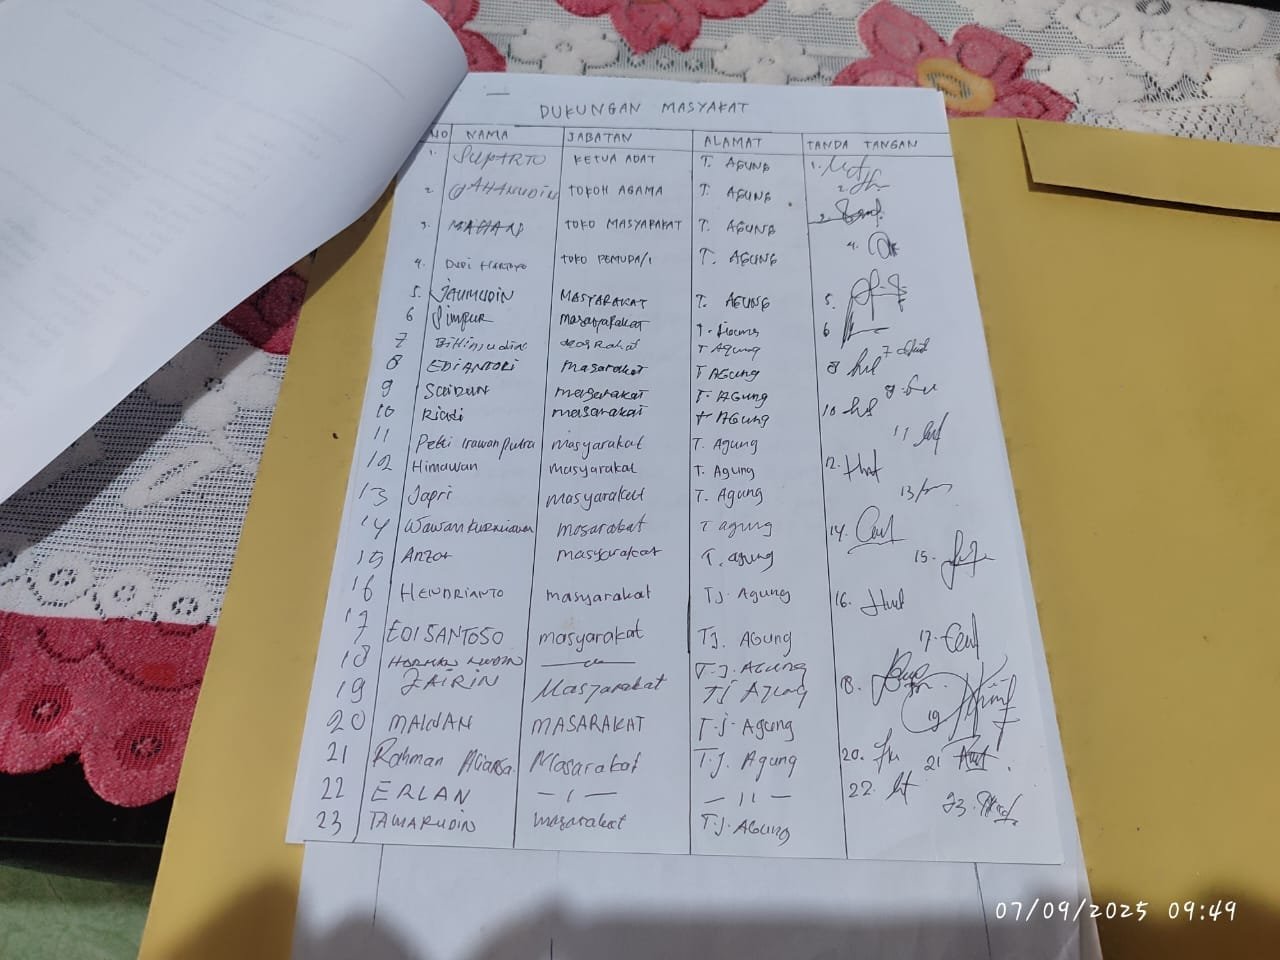 DUKUNGAN MASYAKAT
NO NAMA JABATAN ALAMAT TANDA TANGAN
1. SUPARTO KETUA ADAT T. AGUNG 1.
2. JAHANUDIN TOKOH AGAMA T. AGUNG 2.
3. TOKO MASYARAKAT T. AGUNG 3.
4. DUDI HARTOYO TOKO PEMUDA/I T. AGUNG 4.
5. JAUMUDIN MASYARAKAT T. AGUNG 5.
6 Simpur T. Agung 6
7 T Agung 7
8 EDIANTORI Masarakat T AGung 8
9 SAIDUN masarakat T. AGung 9.
10 Riadi masarakat T AGung 10
11 Petri irawan putra masyarakat T. Agung 11
12 Himawan masyarakat T. Agung 12.
13 Japri masyarakat T. Agung 13
14 Wawan Kurniawan masarakat T agung 14.
15 Anzar masyarakat T. agung 15.
16 HENDRIANTO masyarakat TJ. Agung 16.
17 EDI SANTOSO masyarakat TJ. AGung 17.
18 T.J. AGUNG 18.
19 ZAIRIN Masyarakat TJ Agung 19
20 MAWAN MASARAKAT T.J. Agung 20.
21 Rahman Masarakat T.J. Agung 21
22 ERLAN — ı — — ıı — 22.
23 TAMARUDIN masarakat T.J. AGUNG 23.
07/09/2025 09:49